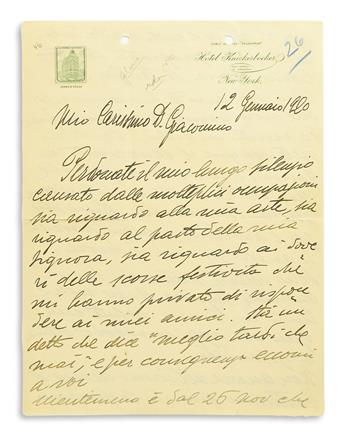 Hotel Knickerbocker
New York
26
12 Gennaio 1920
Mio Carissimo D. Giacomino
Perdonate il mio lungo silenzio
causato dalle molteplici occupazioni
sia riguardo alla mia arte, sia
riguardo al parto della mia
signora, sia riguardo ai dove
ri delle scorse festività che
mi hanno privato di rispon
dere ai miei amici. Ma un
detto che dice "meglio tardi che
mai," e per conseguenza eccomi
a voi
Nientemeno è dal 26 nov che